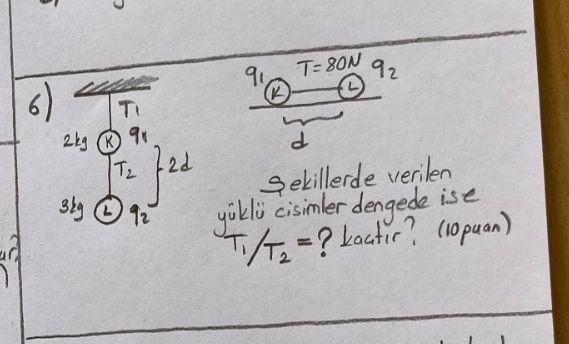 6)
T1
2kg K q1
T2 } 2d
3kg L q2
q1 T=80N q2
K L
d
Şekillerde verilen
yüklü cisimler dengede ise
T1/T2 = ? kaçtır? (10puan)